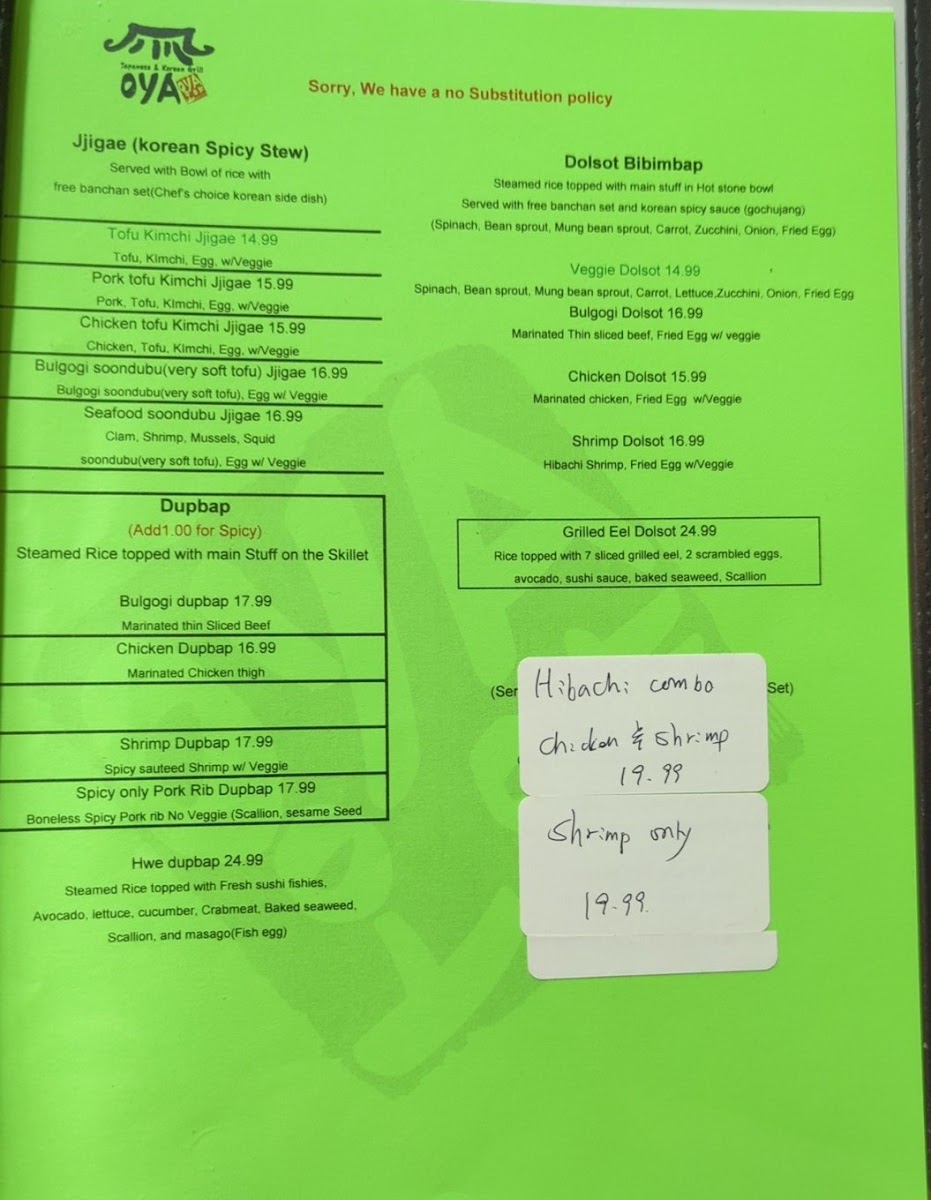 Japanese & Korean Grill
OYA
Sorry, We have a no Substitution policy
Jjigae (korean Spicy Stew)
Served with Bowl of rice with
free banchan set(Chef's choice korean side dish)
Tofu Kimchi Jjigae 14.99
Tofu, KImchi, Egg, w/Veggie
Pork tofu Kimchi Jjigae 15.99
Pork, Tofu, KImchi, Egg, w/Veggie
Chicken tofu Kimchi Jjigae 15.99
Chicken, Tofu, KImchi, Egg, w/Veggie
Bulgogi soondubu(very soft tofu) Jjigae 16.99
Bulgogi soondubu(very soft tofu), Egg w/ Veggie
Seafood soondubu Jjigae 16.99
Clam, Shrimp, Mussels, Squid
soondubu(very soft tofu), Egg w/ Veggie
Dupbap
(Add1.00 for Spicy)
Steamed Rice topped with main Stuff on the Skillet
Bulgogi dupbap 17.99
Marinated thin Sliced Beef
Chicken Dupbap 16.99
Marinated Chicken thigh
Shrimp Dupbap 17.99
Spicy sauteed Shrimp w/ Veggie
Spicy only Pork Rib Dupbap 17.99
Boneless Spicy Pork rib No Veggie (Scallion, sesame Seed
Hwe dupbap 24.99
Steamed Rice topped with Fresh sushi fishies,
Avocado, lettuce, cucumber, Crabmeat, Baked seaweed,
Scallion, and masago(Fish egg)
Dolsot Bibimbap
Steamed rice topped with main stuff in Hot stone bowl
Served with free banchan set and korean spicy sauce (gochujang)
(Spinach, Bean sprout, Mung bean sprout, Carrot, Zucchini, Onion, Fried Egg)
Veggie Dolsot 14.99
Spinach, Bean sprout, Mung bean sprout, Carrot, Lettuce,Zucchini, Onion, Fried Egg
Bulgogi Dolsot 16.99
Marinated Thin sliced beef, Fried Egg w/ veggie
Chicken Dolsot 15.99
Marinated chicken, Fried Egg w/Veggie
Shrimp Dolsot 16.99
Hibachi Shrimp, Fried Egg w/Veggie
Grilled Eel Dolsot 24.99
Rice topped with 7 sliced grilled eel, 2 scrambled eggs,
avocado, sushi sauce, baked seaweed, Scallion
(Ser Set)
Hibachi combo
chicken & shrimp
19.99
Shrimp only
19.99